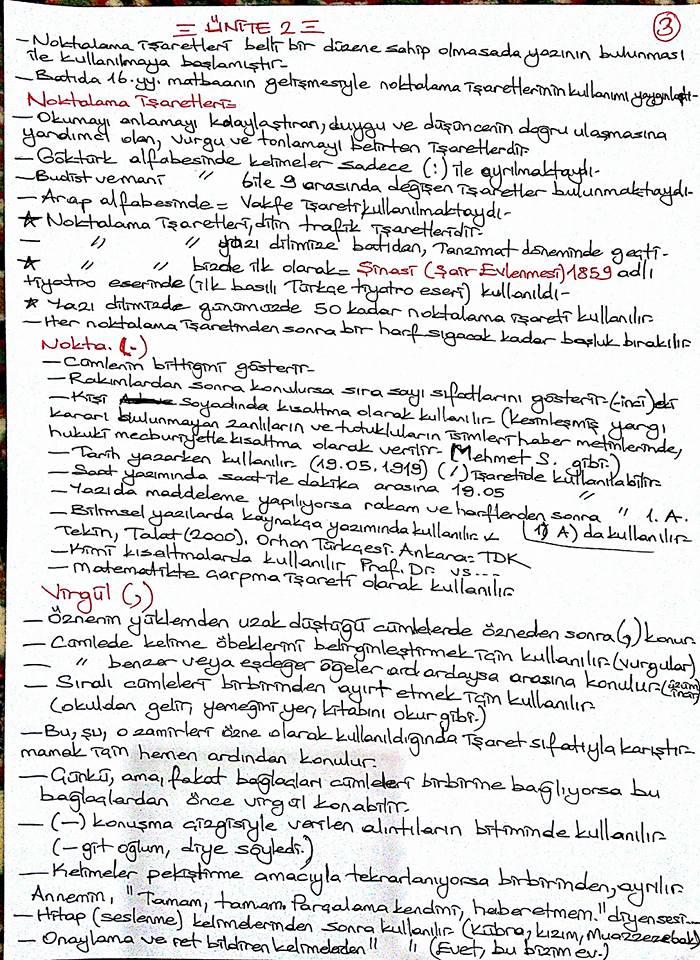 ③
= ÜNİTE 2 =
- Noktalama işaretleri belli bir düzene sahip olmasada yazının bulunması
ile kullanılmaya başlamıştır-
- Batıda 16.yy. matbaanın gelişmesiyle noktalama işaretlerinin kullanımı yaygınlaştı-
Noktalama işaretleri=
- Okumayı anlamayı kolaylaştıran, duygu ve düşüncenin doğru ulaşmasına
yardımcı olan, vurgu ve tonlamayı belirten işaretlerdir-
- Göktürk alfabesinde kelimeler sadece (:) ile ayrılmaktaydı-
- Budist ve mani " bile 9 arasında değişen işaretler bulunmaktaydı-
- Arap alfabesinde = Vakfe işareti kullanılmaktaydı-
★ Noktalama işaretleri, dilin trafik işaretleridir-
- " " yazı dilimize batıdan, Tanzimat döneminde geçti-
★ " " bizde ilk olarak = Şinasi (Şair Evlenmesi) 1859 adlı
tiyatro eserinde (ilk basılı Türkçe tiyatro eseri) kullanıldı-
★ Yazı dilimizde günümüzde 50 kadar noktalama işareti kullanılır
- Her noktalama işaretinden sonra bir harf sığacak kadar boşluk bırakılır
Nokta. (.)
- Cümlenin bittiğini gösterir-
- Rakamlardan sonra konulursa sıra sayı sıfatlarını gösterir-(-inci) eki
- Kişi soyadında kısaltma olarak kullanılır (kesinleşmiş yargı
kararı bulunmayan zanlıların ve tutukluların isimleri haber metinlerinde,
hukuki mecburiyetle kısaltma olarak verilir- Mehmet S. gibi.)
- Tarih yazarken kullanılır (19.05.1919) (/) işaretide kullanılabilir
- Saat yazımında saat ile dakika arasına 19.05 "
- Yazıda maddeleme yapılıyorsa rakam ve harflerden sonra " 1. A.
1) A) da kullanılır
- Bilimsel yazılarda kaynakça yazımında kullanılır
Tekin, Talat (2000). Orhan Türkçesi. Ankara= TDK
- Kimi kısaltmalarda kullanılır Prof. Dr. vs...
- Matematikte çarpma işareti olarak kullanılır
Virgül (,)
- Öznenin yüklemden uzak düştüğü cümlelerde özneden sonra (,) konur
- Cümlede kelime öbeklerini belirginleştirmek için kullanılır (vurgular)
- " benzer veya eşdeğer öğeler ard ardaysa arasına konulur (üzüm, incir)
- Sıralı cümleleri birbirinden ayırt etmek için kullanılır
(okuldan gelir, yemeğini yer, kitabını okur gibi.)
- Bu, şu, o zamirleri özne olarak kullanıldığında işaret sıfatıyla karıştır-
mamak için hemen ardından konulur.
- Çünkü, ama, fakat bağlaçları cümleleri birbirine bağlıyorsa bu
bağlaçlardan önce virgül konabilir
- (-) konuşma çizgisiyle verilen alıntıların bitiminde kullanılır
(- git oğlum, diye söyledi.)
- Kelimeler pekiştirme amacıyla tekrarlanıyorsa birbirinden, ayrılır
Annemin, " Tamam, tamam. Parçalama kendini, haber etmem." diyen sesi....
- Hitap (seslenme) kelimelerinden sonra kullanılır (Kübra, kızım, Muazzezabla)
- Onaylama ve ret bildiren kelimelerden " " (Evet, bu bizim ev.)